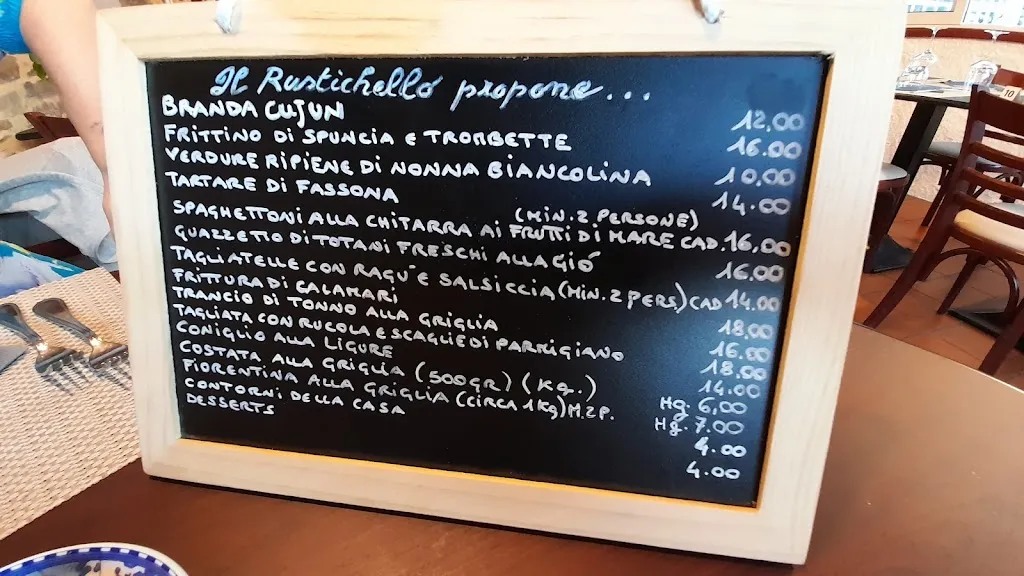 Il Rustichello propone...
BRANDA CUJUN 12.00
FRITTINO DI SPUNCIA E TROMBETTE 16.00
VERDURE RIPIENE DI NONNA BIANCOLINA 10.00
TARTARE DI FASSONA 14.00
(MIN. 2 PERSONE)
SPAGHETTONI ALLA CHITARRA AI FRUTTI DI MARE CAD. 16.00
GUAZZETTO DI TOTANI FRESCHI ALLA GIÓ 16.00
TAGLIATELLE CON RAGU' E SALSICCIA (MIN. 2 PERS) CAD 14.00
FRITTURA DI CALAMARI 18.00
TRANCIO DI TONNO ALLA GRIGLIA 16.00
TAGLIATA CON RUCOLA E SCAGLIE DI PARMIGIANO 18.00
CONIGLIO ALLA LIGURE 14.00
COSTATA ALLA GRIGLIA (500GR) (KG.) Hg 6,00
FIORENTINA ALLA GRIGLIA (CIRCA 1Kg) M.2P. Hg. 7.00
CONTORNI DELLA CASA 4.00
DESSERTS 4.00
10